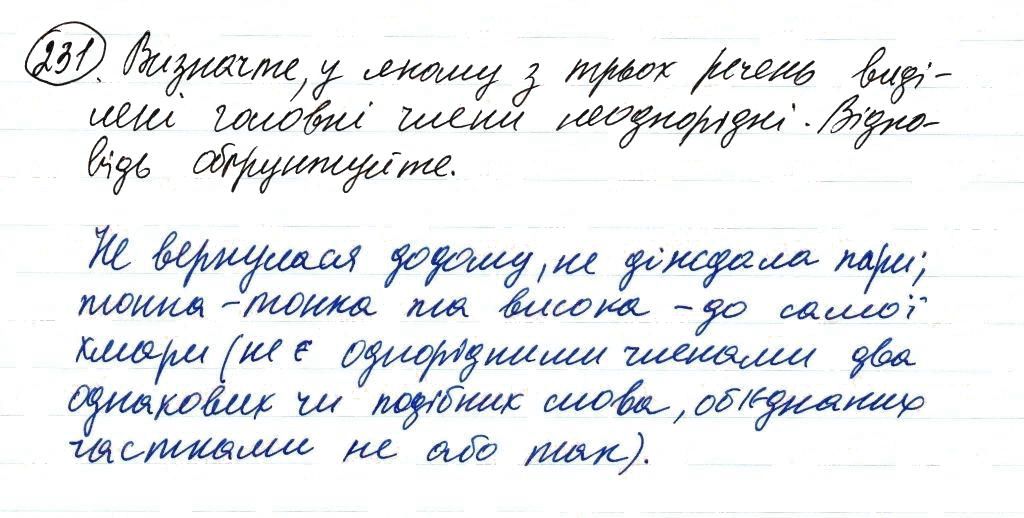 231. Визначте, у якому з трьох речень виді-
лені головні члени неоднорідні. Відпо-
відь обґрунтуйте.
Не вернулася додому, не діждала пари;
тонка-тонка та висока - до самої
хмари (не є однорідними членами два
однакових чи подібних слова, об'єднаних
частками не або так).